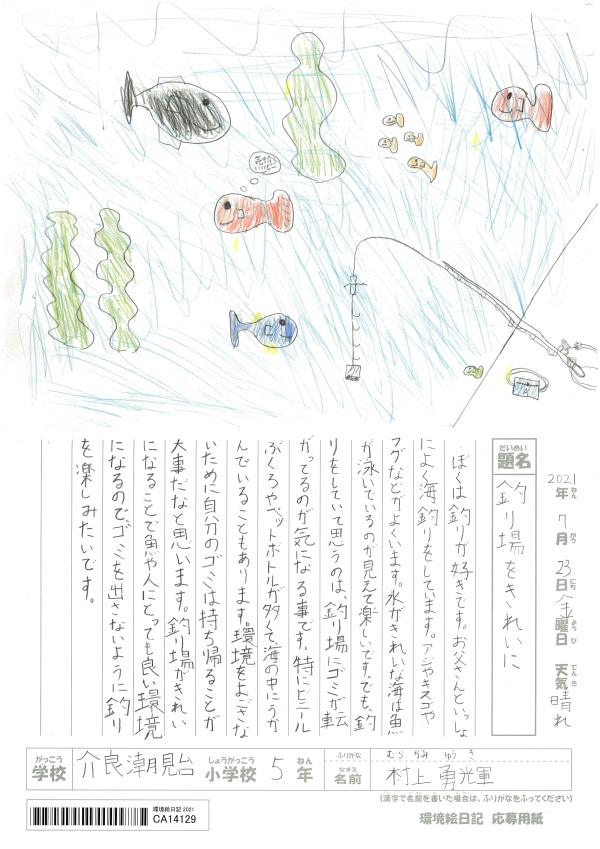 気持ち
いいなー
だいめい
題名
釣り場をきれいに
2021年 7月 23日 金曜日 天気 晴れ
ねん がつ にち よう び てん き
ぼくは釣りが好きです。お父さんといっしょ
によく海釣りをしています。アジやキスゴや
フグなどがよくいます。水がきれいな海は魚
が泳いでいるのが見えて楽しいです。でも、釣
りをしていて思うのは、釣り場にゴミが転
がってるのが気になる事です。特にビニール
ぶくろやペットボトルが多くて、海の中にうか
んでいることもあります。環境をよごさな
いために自分のゴミは持ち帰ることが
大事だなと思います。釣り場がきれい
になることで魚や人にとっても良い環境
になるのでゴミを出さないように釣り
を楽しみたいです。
がっこう しょうがっこう ねん
学校 介良潮見台 小学校 5年
ふりがな むらかみ ゆうき
なまえ
名前 村上 勇光輝
(漢字で名前を書いた場合は、ふりがなをふってください)
環境絵日記 2021
CA14129
環境絵日記 応募用紙